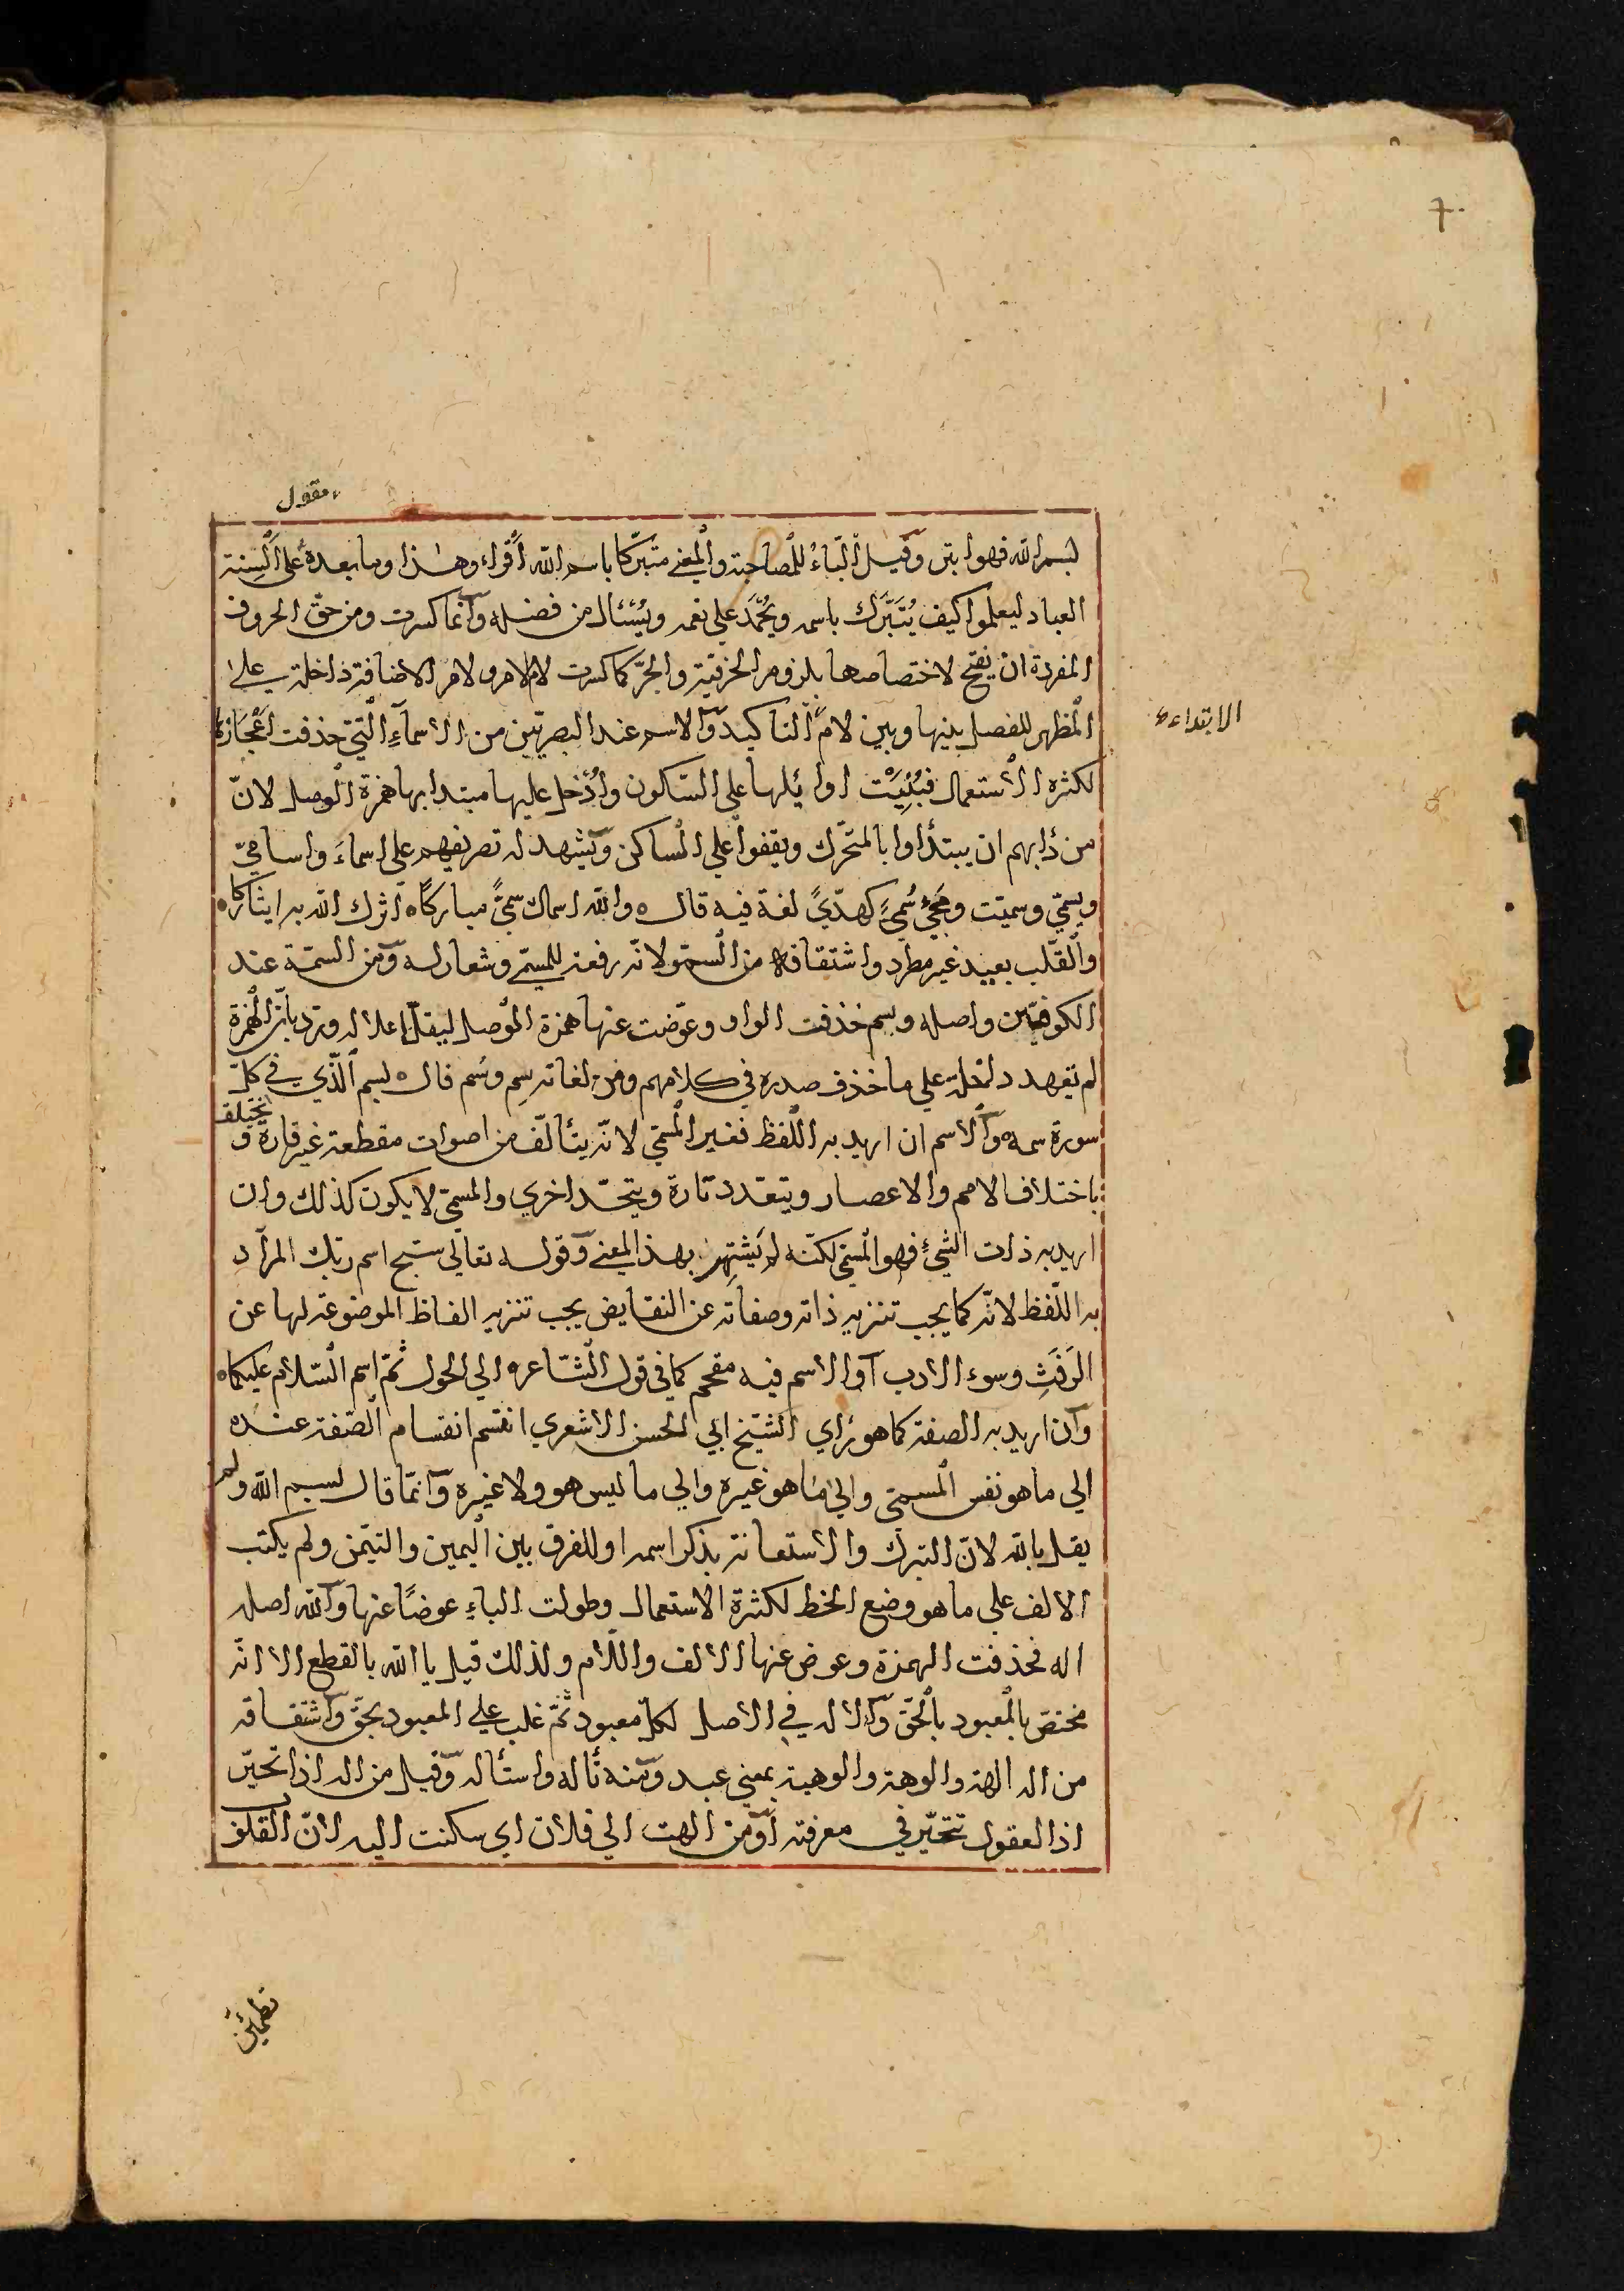 7
مقول
بسم الله فهو ابتر وقيل الباء للمصاحبة والمعني متبركا باسم الله اقراء وهذا وما بعده علي السنة
العباد ليعلموا كيف يُتَبَرَّك باسمه ويُحْمَد علي نعمه ويُسْئال من فضله وانما كسرت ومن حق الحروف
المفردة ان يفتح لاختصاصها بلزوم الحرفية والجر كما كسرت لام الامر ولام الاضافة داخلة علي
المظهر للفصل بينها وبين لام التاكيد والاسم عند البصريين من الاسمآء التي حذفت اعجازها
الابتداء
لكثرة الاستعمال فبُنِيَتْ اوايلها علي السكون وادخل عليها مبتدا بها همزة الوصل لانّ
من دابهم ان يبتدأوا بالمتحرك ويقفوا علي الساكن ويشهد له تصريفهم علي اسماء واسامي
ويسمي وسميت ومجئ سُميً كهديً لغة فيه قال ه والله اسماك سميً مباركًا ه اثرك الله به ايثاركا ه
والقلب بعيد غير مطرد واشتقاقه من السمو لانه رفعة للمسمي وشعار له ومن السمة عند
الكوفيين واصله وسم حذفت الواو وعوضت عنها همزة الوصل ليقل اعلاله ورد بان الهمزة
لم تعهد داخلة علي ما حذف صدره في كلامهم ومن لغاته سِم وسُم قال ه بسم الذي في كل
سورة سمه ه والاسم ان اريد به اللفظ فغير المسمي لانه يتألف من اصوات مقطعة غير قارة و يختلف
باختلاف الامم والاعصار ويتعدد تارة ويتحد اخري والمسمي لا يكون كذلك وان
اريد به ذات الشئ فهو المسمي لكنه لم يشتهر بهذا المعني وقوله تعالي سبح اسم ربك المراد
به اللفظ لانه كما يجب تنزيه ذاته وصفاته عن النقايض يجب تنزيه الفاظ الموضوعة لها عن
الرَفَثِ وسوء الادب او الاسم فيه مقحم كما في قول الشاعر ه الي الحول ثم اسم السلام عليكما ه
وان اريد به الصفة كما هو رأي الشيخ ابي الحسن الاشعري انقسم انقسام الصفة عنده
الي ما هو نفس المسمي والي ما هو غيره والي ما ليس هو ولا غيره وانما قال بسم الله ولم
يقل بالله لان التبرك والاستعانة بذكر اسمه او للفرق بين اليمين والتيمن ولم يكتب
الالف علي ما هو وضع الخط لكثرة الاستعمال وطولت الباء عوضًا عنها والله اصله
اله فحذفت الهمزة وعوض عنها الالف واللام ولذلك قيل يا الله بالقطع الا انه
مختص بالمعبود بالحق والاله في الاصل لكل معبود ثم غلب علي المعبود بحق واشتقاقه
من اله الهة والوهة والوهية بمعني عبد ومنه تأله واستأله وقيل من اله اذا تحيّر
اذ العقول تتحيّر في معرفته او من الهت الي فلان اي سكنت اليه لان القلوب
تطمئن